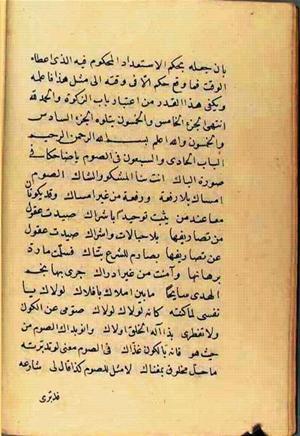 بان جعله بحكم الاستعداد المحكوم فيه الذى اعطاه
الوقت فما وقع حكم الا فى وقته الى مثل هذا فاعلمه
ويكفى هذا القدر من اعتبار باب الزكوة والحمد لله
انتهى الجزء الخامس والخمسون يتلوه الجزء السادس
والخمسون والله اعلم بسم الله الرحمن الرحيم
الباب الحادى والسبعون فى الصوم يا ضاحكا فى
صورة الباك انت بنا المشكو والشاك الصوم
امساك بلا رفعة ورفعة من غير امساك وقد يكونان
معا عند من يثبت توحيدا باشراك صيدت عقول
من تصاريفها بلا حبالات واشراك صيدت عقول
عن تصاريفها بصارم للشرع بتاك فسلمت ما رده
برهانها وآمنت من غير ادراك جرى بها نجم
الهدى سابحا ما بين املاك بافلاك لولاك يا
نفسى لما كنته كانه لولاك لولاك صومى عن الكون
ولا تفطرى بذا اله الخلق اولاك وانو بذاك الصوم من
حيث هو فانه بالكون غذاك فى الصوم معنى لو تدبرته
ما حل مخلوق بمغناك لا مثل للصوم كذا قال لى شارعه
فدبرى